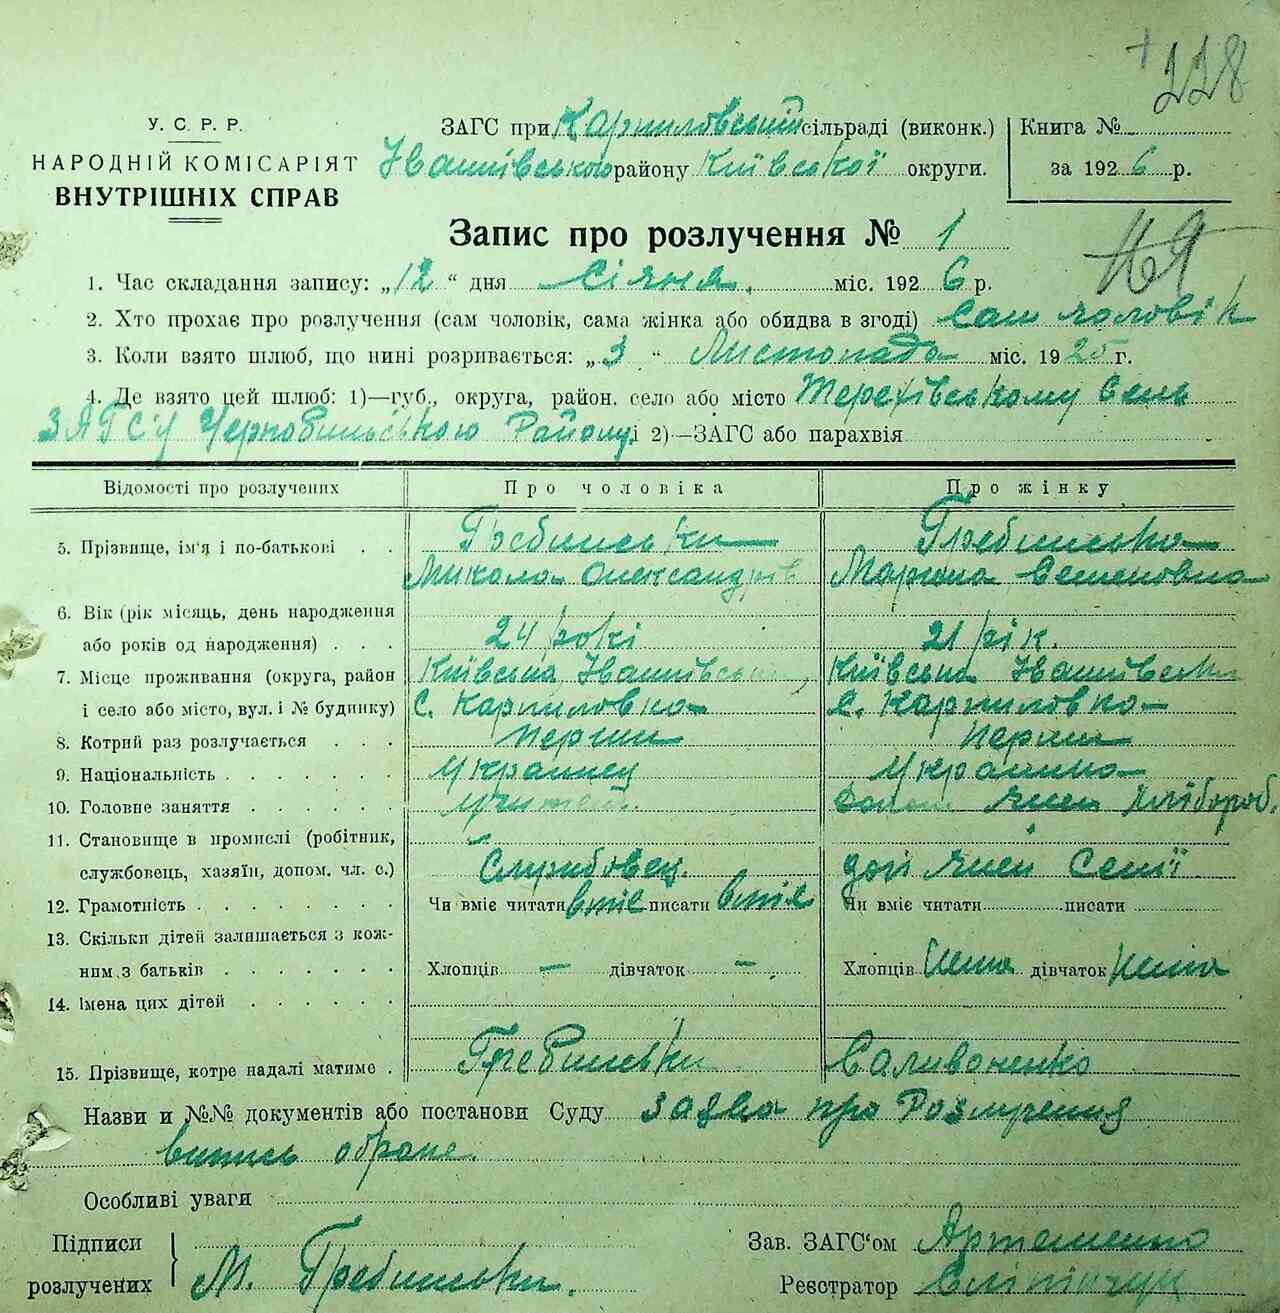 228
У. С. Р. Р.
НАРОДНІЙ КОМІСАРІЯТ
ВНУТРІШНІХ СПРАВ
ЗАГС при Карпиловській сільраді (виконк.)
Іванківського району Київської округи.
Книга №
за 1926 р.
Запис про розлучення № 1
1. Час складання запису: „12“ дня Січня міс. 1926 р.
2. Хто прохає про розлучення (сам чоловік, сама жінка або обидва в згоді) сам чоловік
3. Коли взято шлюб, що нині розривається: „3“ Листопада міс. 1925 г.
4. Де взято цей шлюб: 1)—губ., округа, район. село або місто Терехівському Сель
ЗАГСі Чернобильського Району і 2)—ЗАГС або парахвія
Відомості про розлучених Про чоловіка Про жінку
5. Прізвище, ім'я і по-батькові . . Гребинськи Гребинська
Микола Олександрів Марина Семеновна
6. Вік (рік місяць, день народження
або років од народження) . . . 24 рокі 21 рік.
7. Місце проживання (округа, район Київська Іванківськ Київська Іванківськи
і село або місто, вул. і № будинку) С. Карпиловка С. Карпиловка
8. Котрий раз розлучається . . . перши перши
9. Національність . . . . . . . Українец Українка
10. Головне заняття . . . . . . учител. член хлібороб.
11. Становище в промислі (робітник,
службовець, хазяїн, допом. чл. с.) Службовец. доп член Семії
12. Грамотність . . . . . . . . Чи вміє читати вміє писати вміє Чи вміє читати писати
13. Скільки дітей залишається з кож-
ним з батьків . . . . . . Хлопців — дівчаток — Хлопців Нема дівчаток нема
14. Імена цих дітей . . . . . .
15. Прізвище, котре надалі матиме . Гребинськи Саливоненко
Назви и №№ документів або постанови Суду заява про Розлучення
витись
Особливі уваги
Підписи
розлучених М. Гребинськи.
Зав. ЗАГС‘ом Артеменко
Реєстратор